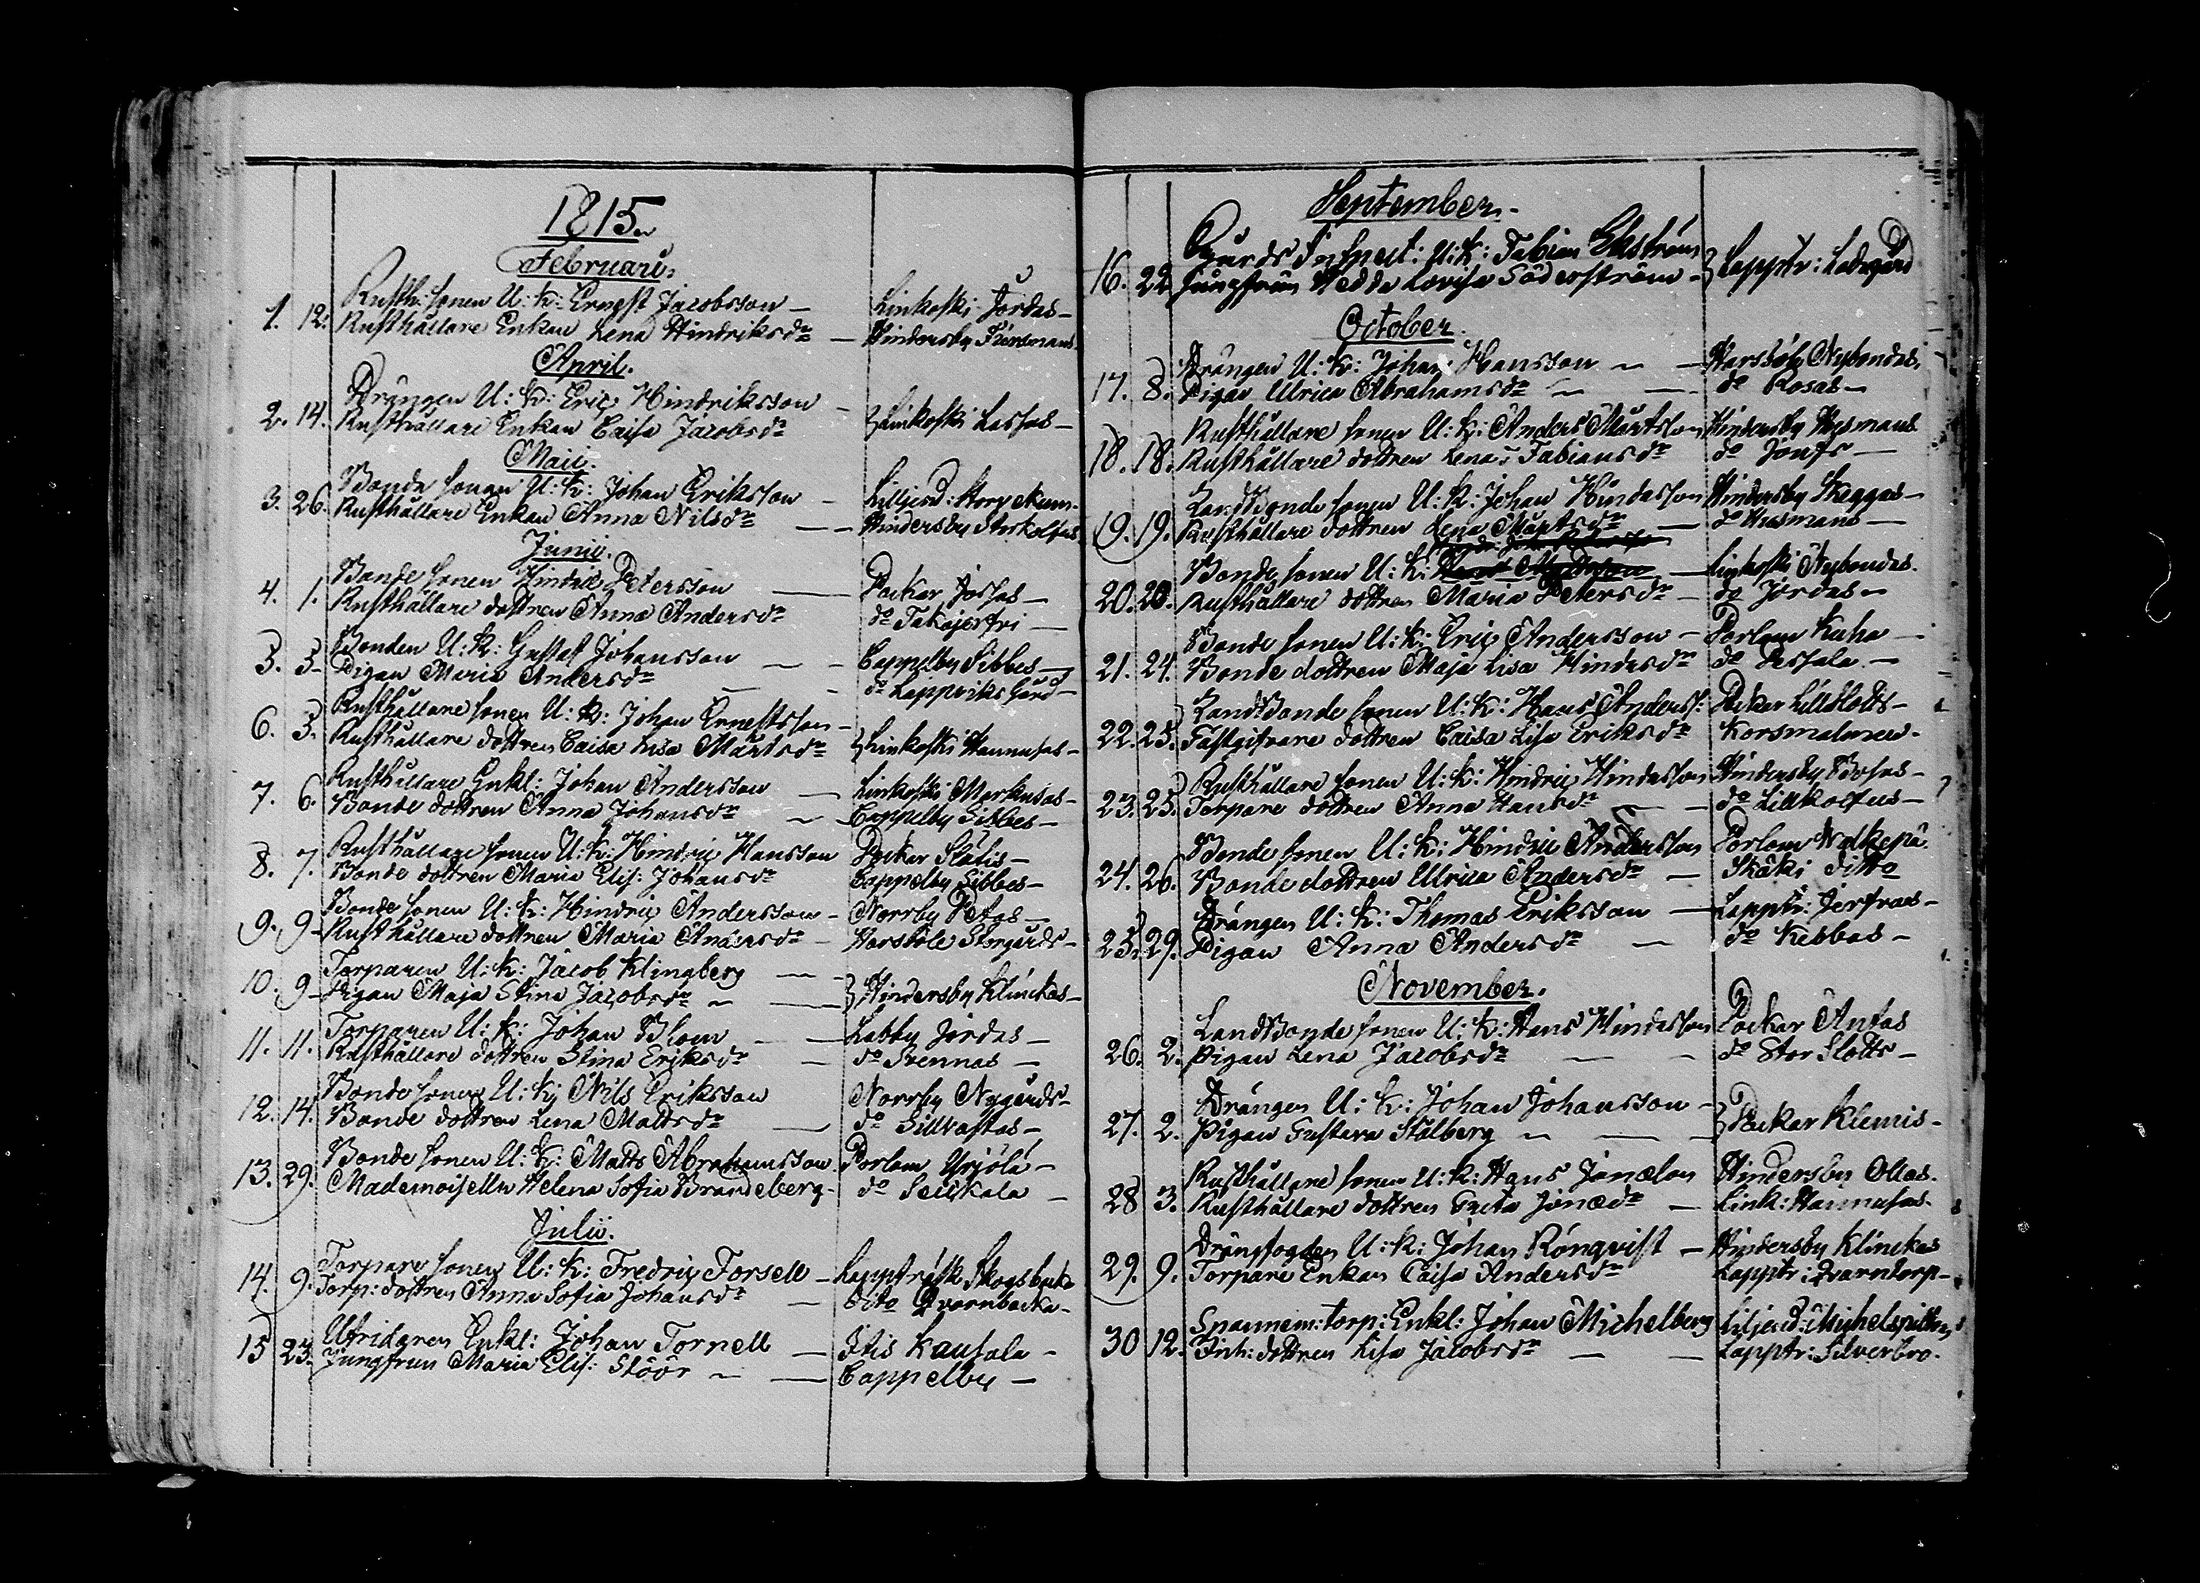 1815.
Februari.
1. 12. Rusth: sonen U: K: Ernest Jacobsson — Linkoski Jordas —
Rusthållare Enkan Lena Hindriksdr — Hindersby
April.
2. 14. Drängen U: K: Eric Hindriksson — } Linkoski Lassas —
Rusthållare Enkan Caisa Jacobsdr
Maii.
3. 26. Bonde sonen U: K: Johan Eriksson — Liljend:
Rusthållare Enkan Anna Nilsdr — Hindersby Storkoltus
Junii.
4. 1. Bonde sonen Hindric Petersson — Pockar Jossas —
Rusthållare dottren Anna Andersdr do
5. 5. Bonden U: K: Gustaf Johansson — Cappelby Sibbes —
Pigan Maria Andersdr — do Lappviks Gård —
6. 5. Rusthållare sonen U: K: Johan Ernestsson — } Linkoski Hannusas —
Rusthållare dottren Caisa Lisa Mårtsdr
7. 6. Rusthållare Enkl: Johan Andersson — Linkoski Markusas —
Bonde dottren Anna Johansdr — Cappelby Sibbes —
8. 7. Rusthållare sonen U: K: Hindric Hansson Pockar Slåtis —
Bonde dottren Maria Elis: Johansdr Cappelby Sibbes —
9. 9. Bonde sonen U: K: Hindric Andersson — Norrby
Rusthållare dottren Maria Andersdr — Harsböle Storgårds —
10. 9. Torparen U: K: Jacob Klingberg — } Hindersby Klinckas —
Pigan Maja Stina Jacobsdr —
11. 11. Torparen U: K: Johan Blom — Labby Jordas —
Rusthållare dottren Stina Eriksdr — do Svennas —
12. 14. Bonde sonen U: K: Nils Eriksson Norrby Nygårds —
Bonde dottren Lena Mattsdr — do Sillvastas —
13. 29. Bonde sonen U: K: Matts Abrahamsson Porlom Yrjölä —
Mademoiselln Helena Sofia Brandeberg — do Seickala —
Julii.
14. 9. Torpare sonen U: K: Fredric Forsell — Lappträsk Skogsbacka
Torp: dottren Anna Sofia Johansdr — Dito Qvarnbacka —
15 23. Utridaren Enkl: Johan Tornell — Itis Kausala —
Jungfrun Maria Elis: Stöör — Cappelby —
September.
16. 22. Gårds Inspect: U: K: Fabian Ekström } Lapptr: Ladugård
Jungfrun Hedda Lovisa Söderström —
October.
17. 8. Drängen U: K: Johan Hansson — Harsböle Nybondas
Pigan Ulrica Abrahamsdr — do Rosas —
18. 18. Rusthållare sonen U: K: Anders Mårtsson Hindersby Husmans
Rusthållare dottren Lena Fabiansdr do Jonss —
19. 19. Landbonde sonen U: K: Johan Hindersson Hindersby Skeggas —
Rusthållare dottren Lena Mårtsdr — do Husmans —
20. 20. Bonde sonen U: K: — Linkoski Nybondas.
Rusthållare dottren Maria Petersdr — do Jordas —
21. 24. Bonde sonen U: K: Eric Andersson — Porlom Kuha —
Bonde dottren Maja Lisa Hindersdr do Pessala —
22. 25. Landbonde sonen U: K: Hans Anderss: Pockar Lillslotts —
Gästgifvare dottren Caisa Lisa Eriksdr Korsmalmen.
23. 25. Rusthållare sonen U: K: Hindric Hindersson Hindersby Bosas —
Torpare dottren Anna Hansdr — do Lillkoltus —
24. 26. Bonde sonen U: K: Hindric Andersson Porlom Walkepä
Bonde dottren Ulrica Andersdr — Skäki ditto
25. 29. Drängen U: K: Thomas Eriksson — Lapptr: Jerfvas —
Pigan Anna Andersdr — do Kebbas —
November.
26. 2. Landbonde sonen U: K: Hans Hindersson Pockar Antas
Pigan Lena Jacobsdr — do Stor Slotts —
27. 2. Drängen U: K: Johan Johansson — } Pockar Klemis —
Pigan Gustava Stålberg —
28 3. Rusthållare sonen U: K: Hans Jonæson Hindersby Ollas.
Rusthållare dottren Greta Jonædr — Link: Hannusas.
29. 9. Drängfogden U: K: Johan Rönqvist — Hindersby Klinckas
Torpare Enkan Caisa Andersdr Lapptr: Qvarntorp —
30 12. Spannem: torp: Enkl: Johan Michelberg Liljend: Michelspiltom
Inh: dottren Lisa Jacobsdr — Lapptr: Silverbro.